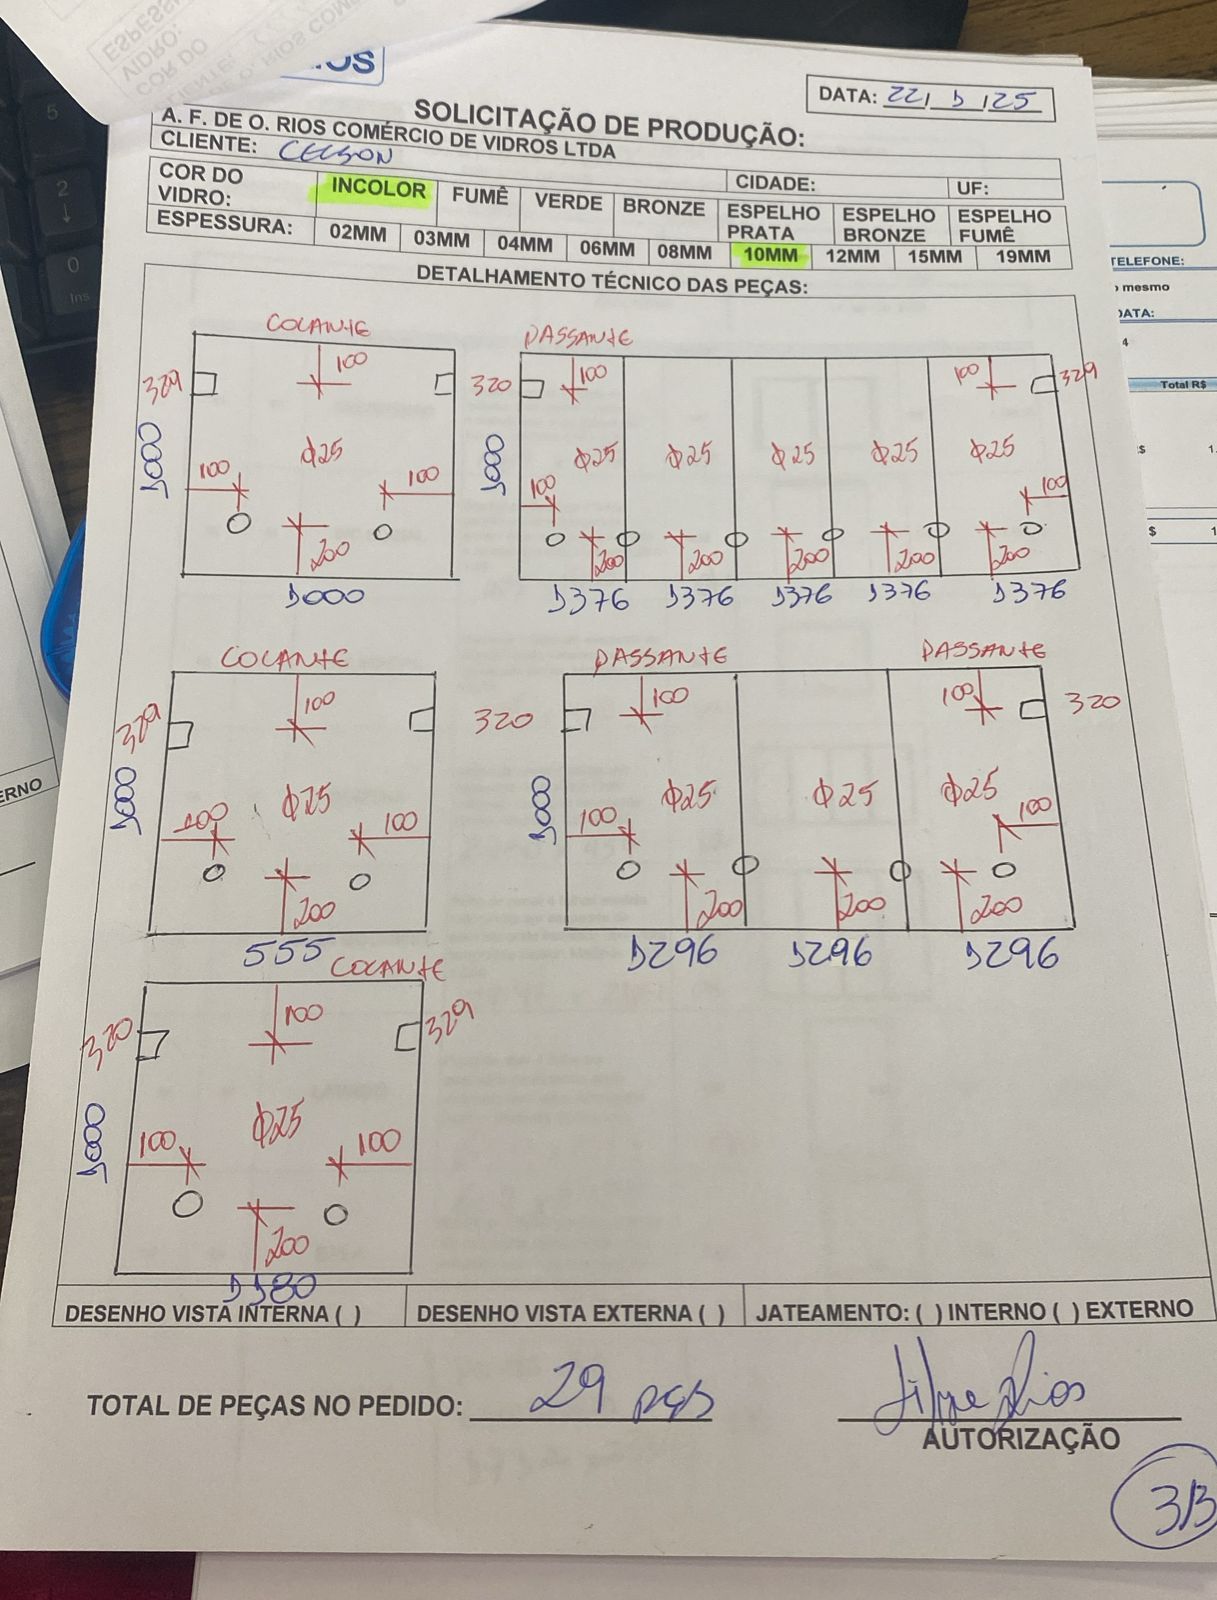 DATA: 22/ 1 /25
SOLICITAÇÃO DE PRODUÇÃO:
A. F. DE O. RIOS COMÉRCIO DE VIDROS LTDA
CLIENTE:
CIDADE: UF:
COR DO VIDRO: INCOLOR FUMÊ VERDE BRONZE ESPELHO PRATA ESPELHO BRONZE ESPELHO FUMÊ
ESPESSURA: 02MM 03MM 04MM 06MM 08MM 10MM 12MM 15MM 19MM
DETALHAMENTO TÉCNICO DAS PEÇAS:
COLANTE
329 100
1000
Φ25
100 100
200
1000
PASSANTE
320 100 100 329
1000
Φ25 Φ25 Φ25 Φ25 Φ25
100 100
200 200 200 200 200
1376 1376 1376 1376 1376
COLANTE
329 100
1000
Φ25
100 100
200
555
PASSANTE PASSANTE
320 100 100 320
1000
Φ25 Φ25 Φ25
100 100
200 200 200
1296 1296 1296
COLANTE
320 100 329
1000
Φ25
100 100
200
1180
DESENHO VISTA INTERNA ( ) DESENHO VISTA EXTERNA ( ) JATEAMENTO: ( ) INTERNO ( ) EXTERNO
TOTAL DE PEÇAS NO PEDIDO: 29 pçs
AUTORIZAÇÃO
3/3
TELEFONE:
mesmo
DATA:
4
Total R$
ERNO
5
2
0
Ins